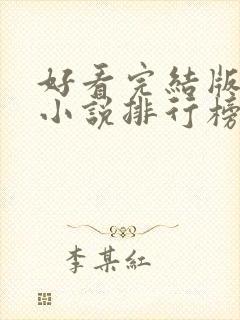 好看完結版
小說排行榜
李某紅